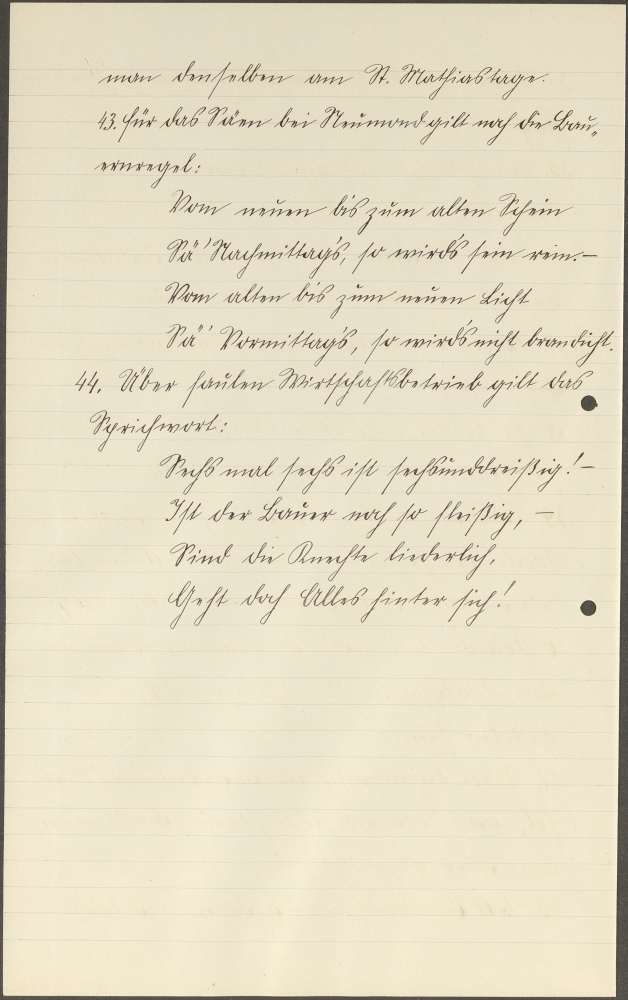 man denselben am St. Mathiastage.
43. Für das Säen bei Neumond gilt noch die Bau„
ernregel:
Vom neuen bis zum alten Schein
Sä' Nachmittag's, so wird's fein rein. –
Vom alten bis zum neuen Licht
Sä' Vormittag's, so wird's nicht brandicht.
44. Über faulen Wirtschaftsbetrieb gilt das
Sprichwort:
Sechs mal sechs ist sechsunddreißig! –
Ist der Bauer noch so fleißig, –
Sind die Knechte liederlich,
Geht doch Alles hinter sich!